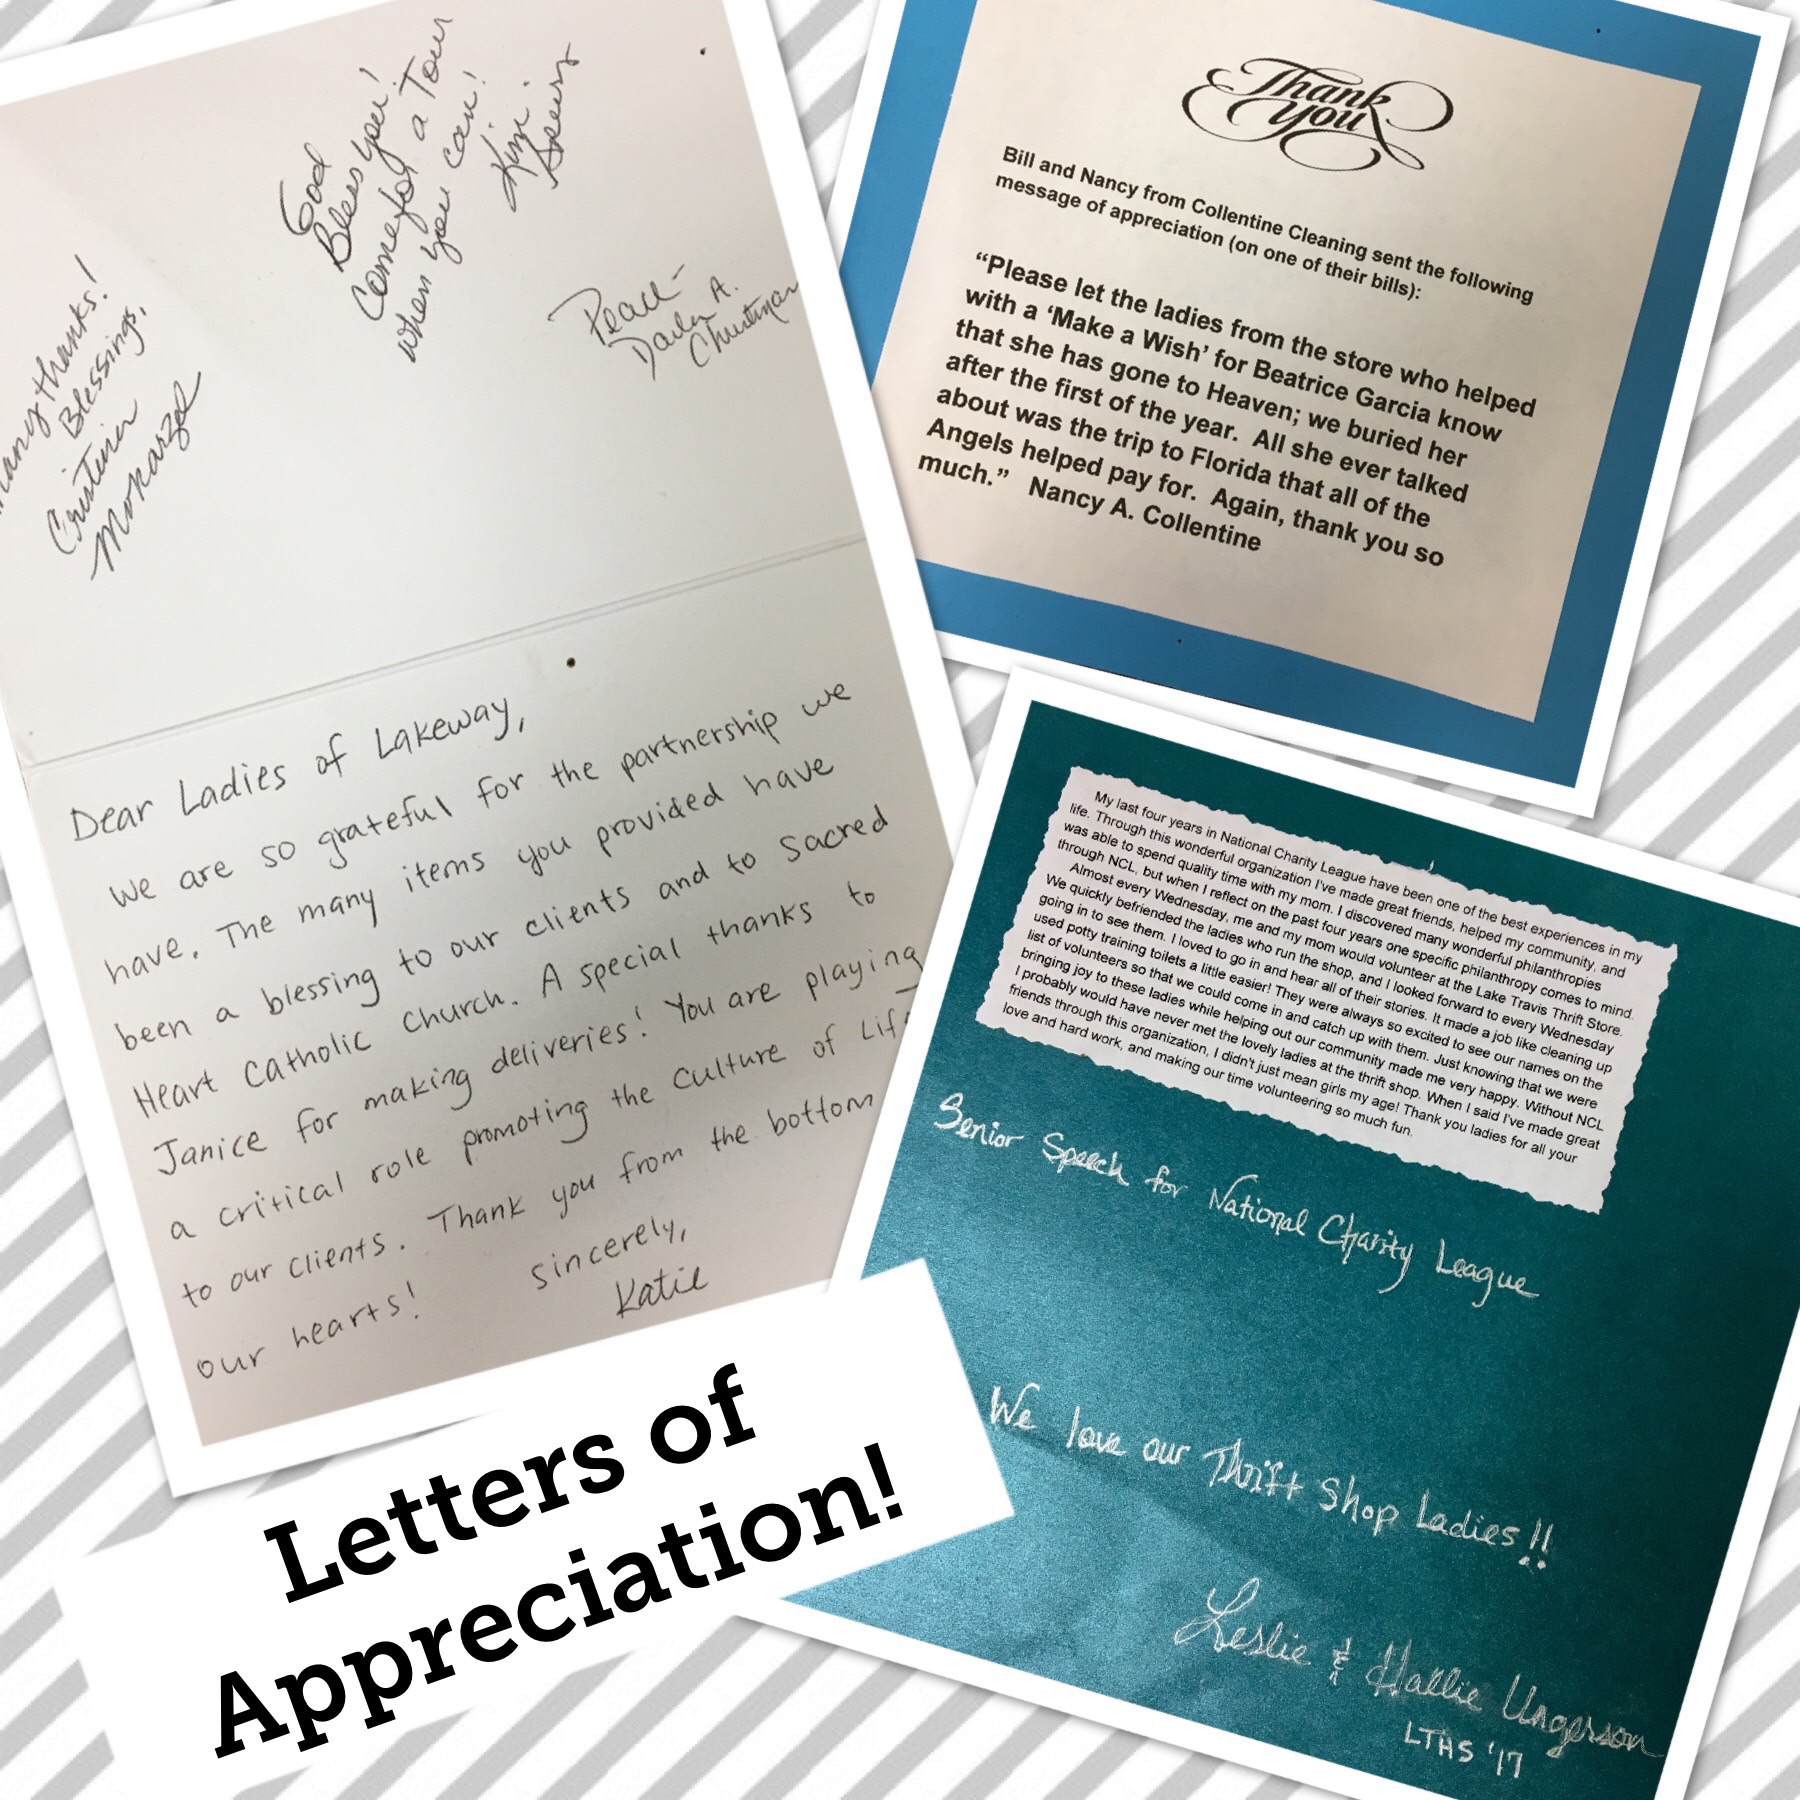 many thanks!
Blessings,
Cristina
Mokarzel
God
Bless you!
Come for a Tour
when you can!
Kim
Speirs
Peace-
A.
Christman
Dear Ladies of Lakeway,
We are so grateful for the partnership we
have. The many items you provided have
been a blessing to our clients and to Sacred
Heart Catholic Church. A special thanks to
Janice for making deliveries! You are playing
a critical role promoting the Culture of Life
to our clients. Thank you from the bottom
our hearts!
sincerely,
Katie
Thank
You
Bill and Nancy from Collentine Cleaning sent the following
message of appreciation (on one of their bills):
“Please let the ladies from the store who helped
with a ‘Make a Wish’ for Beatrice Garcia know
that she has gone to Heaven; we buried her
after the first of the year. All she ever talked
about was the trip to Florida that all of the
Angels helped pay for. Again, thank you so
much.” Nancy A. Collentine
My last four years in National Charity League have been one of the best experiences in my
life. Through this wonderful organization I've made great friends, helped my community, and
was able to spend quality time with my mom. I discovered many wonderful philanthropies
through NCL, but when I reflect on the past four years one specific philanthropy comes to mind.
Almost every Wednesday, me and my mom would volunteer at the Lake Travis Thrift Store.
We quickly befriended the ladies who run the shop, and I looked forward to every Wednesday
going in to see them. I loved to go in and hear all of their stories. It made a job like cleaning up
used potty training toilets a little easier! They were always so excited to see our names on the
list of volunteers so that we could come in and catch up with them. Just knowing that we were
bringing joy to these ladies while helping out our community made me very happy. Without NCL
I probably would have never met the lovely ladies at the thrift shop. When I said I've made great
friends through this organization, I didn't just mean girls my age! Thank you ladies for all your
love and hard work, and making our time volunteering so much fun.
Senior Speech for National Charity League
We love our Thrift Shop Ladies!!
Leslie & Hallie Ungerson
LTHS '17
Letters of
Appreciation!